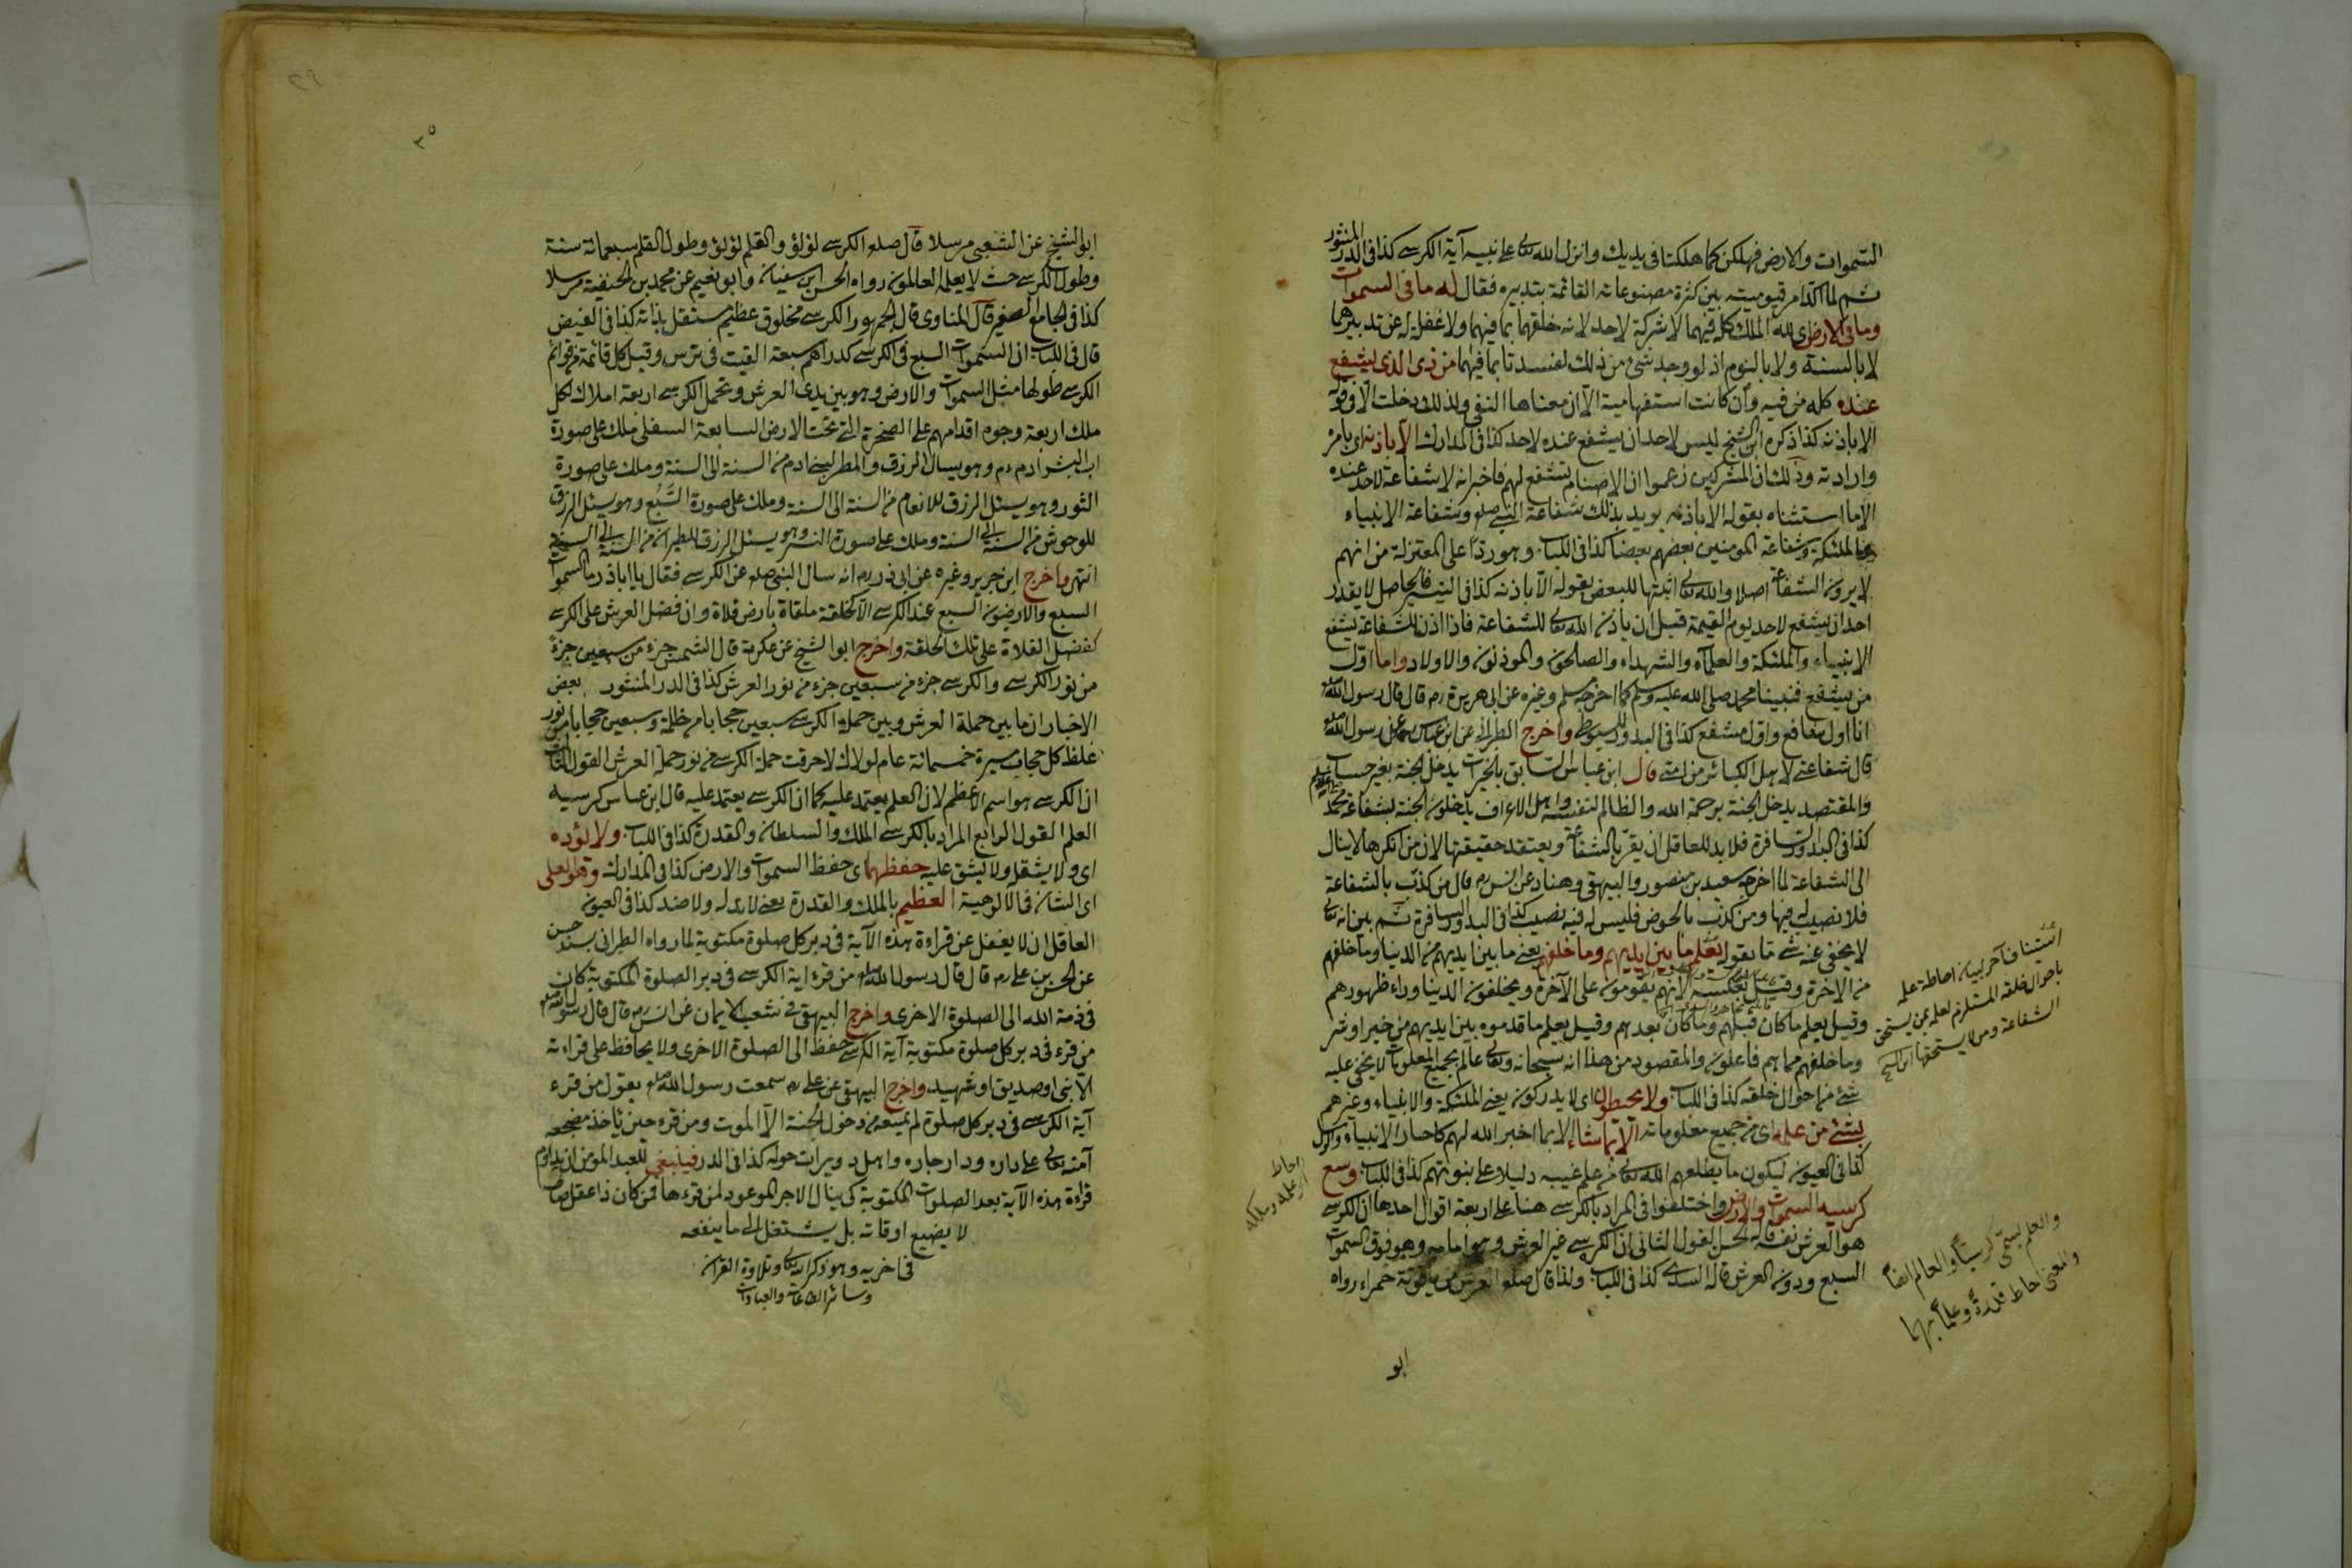 السموات والارض فهلكن كما هلكتا فى يديك وانزل الله تعالى على نبيه آية الكرسى كذا فى الدر المنثور
ثم لما اكد امر قيوميته بين كثرة مصنوعاته القائمة بتدبيره فقال له ما فى السموات
وما فى الارض اى لله الملك كله فيهما لا شركة لاحد لانه خلقهما بما فيهما ولا غفلة له عن تدبيرهما
لا بالسنة ولا بالنوم اذ لو وجد شئ من ذلك لفسدتا بما فيهما من ذى الذى يشفع
عنده كلمة من فيه وان كانت استفهامية الا ان معناها النفى ولذلك دخلت الا فى قوله
الا باذنه كذا ذكره ابن الشيخ ليس لاحد ان يشفع عنده لاحد كذا فى المدارك الا باذنه اى بامره
وارادته وذلك ان المشركين زعموا ان الاصنام تشفع لهم فاخبر انه لا شفاعة لاحد عنده
الا ما استثناه بقوله الا باذنه يريد بذلك شفاعة النبى صلعم وشفاعة الانبياء
والملئكة وشفاعة المومنين بعضهم بعضا كذا فى اللباب وهو رد على المعتزلة من انهم
لا يرون الشفاعة اصلا والله تعالى اثبتها للبعض بقوله الا باذنه كذا فى التيسير فالحاصل لا يقدر
احد ان يشفع لاحد يوم القيمة قبل ان ياذن الله تعالى للشفاعة فاذا اذن للشفاعة يشفع
الانبياء والملئكة والعلماء والشهداء والصالحون والموذنون والاولاد واما اول
من يشفع فنبينا محمد صلى الله عليه وسلم كما اخرج مسلم وغيره عن ابى هريرة رم قال قال رسول الله صلعم
انا اول شافع واول مشفع كذا فى البدور للسيوطى واخرج الطبرانى عن ابن عباس عن رسول الله صلعم
قال شفاعتى لاهل الكبائر من امتى قال ابن عباس السابق بالخيرات يدخل الجنة بغير حساب
والمقتصد يدخل الجنة برحمة الله والظالم لنفسه واهل الاعراف يدخلون الجنة بشفاعة محمد
كذا فى البدور السافرة فلا بد للعاقل ان يقر بالشفاعة ويعتقد حقيقتها لان من انكرها لا ينال
الى الشفاعة لما اخرجه سعيد بن منصور والبيهقى وهناد عن انس رم قال من كذب بالشفاعة
فلا نصيب له فيها ومن كذب بالحوض فليس له فيه نصيب كذا فى البدور السافرة ثم بين انه تعالى
لا يخفى عنه شئ ما بقوله يعلم ما بين ايديهم وما خلفهم يعنى ما بين ايديهم من الدنيا وما خلفهم
من الاخرة وقيل بعكسه لانهم يقومون على الآخرة ويخلفون الدنيا وراء ظهورهم
وقيل يعلم ما كان قبلهم وما كان بعدهم وقيل يعلم ما قدموه بين ايديهم من خير او شر
وما خلفهم مما هم فاعلون والمقصود من هذا انه سبحانه وتعالى عالم بجميع المعلومات لا يخفى عليه
شئ من احوال خلقه كذا فى اللباب ولا يحيطون اى لا يدركون يعنى الملئكة والانبياء وغيرهم
بشئ من علمه اى من جميع معلوماته الا بما شاء الا بما اخبر الله لهم كاخبار الانبياء والرسل
كذا فى العيون ليكون ما يطلعهم الله تعالى من علم غيبه دليلا على نبوتهم كذا فى اللباب وسع
كرسيه السموات والارض واختلفوا فى المراد بالكرسى هنا على اربعة اقوال احدها ان الكرسى
هو العرش نفسه قاله الحسن القول الثانى ان الكرسى غير العرش وهو امامه وهو فوق السموات
السبع ودون العرش قاله السدى كذا فى اللباب ولذا قال صلعم العرش من ياقوتة حمراء رواه
ابو
استيناف آخر لبيان احاطة علمه
باحوال خلقه المستلزم لعلمه بمن يستحق
الشفاعة ومن لا يستحقها ابن الشيخ
احاط
علمه وملكه
والعلم يسمى كرسيا والعالم ايضا
والمعنى احاط قدرة وعلما بهما
٣٥
ابو الشيخ عن الشعبى مرسلا قال صلعم الكرسى لؤلؤ والقلم لؤلؤ وطول القلم سبعمائة سنة
وطول الكرسى حيث لا يعلمه العالمون رواه الحسن ابن سفيان وابو نعيم عن محمد بن الحنفية مرسلا
كذا فى الجامع الصغير قال المناوى قال الجمهور الكرسى مخلوق عظيم مستقل بذاته كذا فى الفيض
قال فى اللباب ان السموات السبع فى الكرسى كدراهم سبعة القيت فى ترس وقيل كل قائمة من قوائم
الكرسى طولها مثل السموات والارض وهو بين يدى العرش وتحمل الكرسى اربعة املاك لكل
ملك اربعة وجوه اقدامهم على الصخرة التى تحت الارض السابعة السفلى ملك على صورة
اب البشر ادم عم وهو يسال الرزق والمطر لبنى ادم من السنة الى السنة وملك على صورة
الثور وهو يسئل الرزق للانعام من السنة الى السنة وملك على صورة السبع وهو يسئل الرزق
للوحوش من السنة الى السنة وملك على صورة النسر وهو يسئل الرزق للطير من السنة الى السنة
انتهى واخرج ابن جرير وغيره عن ابى ذر رم انه سال النبى صلعم عن الكرسى فقال يا ابا ذر ما السموات
السبع والارضون السبع عند الكرسى الا كحلقة ملقاة بارض فلاة وان فضل العرش على الكرسى
كفضل الفلاة على تلك الحلقة واخرج ابو الشيخ عن عكرمة قال الشمس جزء من سبعين جزء
من نور الكرسى والكرسى جزء من سبعين جزء من نور العرش كذا فى الدر المنثور بعض
الاخبار ان ما بين حملة العرش وبين حملة الكرسى سبعين حجابا من ظلمة وسبعين حجابا من نور
غلظ كل حجاب مسيرة خمسمائة عام لولا ذلك لاحرقت حملة الكرسى من نور حملة العرش القول الثالث
ان الكرسى هو اسم الاعظم لان العلم يعتمد عليه كما ان الكرسى يعتمد عليه قال ابن عباس كرسيه
العلم القول الرابع المراد بالكرسى الملك والسلطان والقدرة كذا فى اللباب ولا يؤده
اى ولا يثقله ولا يشق عليه حفظهما اى حفظ السموات والارض كذا فى المدارك وهو العلى
اى الشان فى الالوهية العظيم بالملك والقدرة يعنى لا ند له ولا ضد كذا فى العيون
العاقل ان لا يغفل عن قراءة هذه الآية فى دبر كل صلوة مكتوبة لما رواه الطبرانى بسند حسن
عن الحسن بن على رم قال قال رسول الله صلعم من قرء اية الكرسى فى دبر الصلوة المكتوبة كان
فى ذمة الله الى الصلوة الاخرى واخرج البيهقى فى شعب الايمان عن انس رم قال قال رسول الله صلعم
من قرء فى دبر كل صلوة مكتوبة آية الكرسى حفظ الى الصلوة الاخرى ولا يحافظ على قراءته
الا نبى او صديق او شهيد واخرج البيهقى عن على رم سمعت رسول الله صلعم يقول من قرء
آية الكرسى فى دبر كل صلوة لم يمنعه من دخول الجنة الا الموت ومن قرء حين ياخذ مضجعه
آمنه تعالى على داره ودار جاره واهل دويرات حوله كذا فى الدر فينبغى للعبد المؤمن ان يداوم
قراءة هذه الآية بعد الصلوات المكتوبة كى ينال الاجر الموعود لمن قرءها فمن كان ذا عقل صاف
لا يضيع اوقاته بل يشتغل الى ما ينفعه
فى اخريه وهو ذكر الله تعالى وتلاوة القران
وسائر الطاعات والعبادات